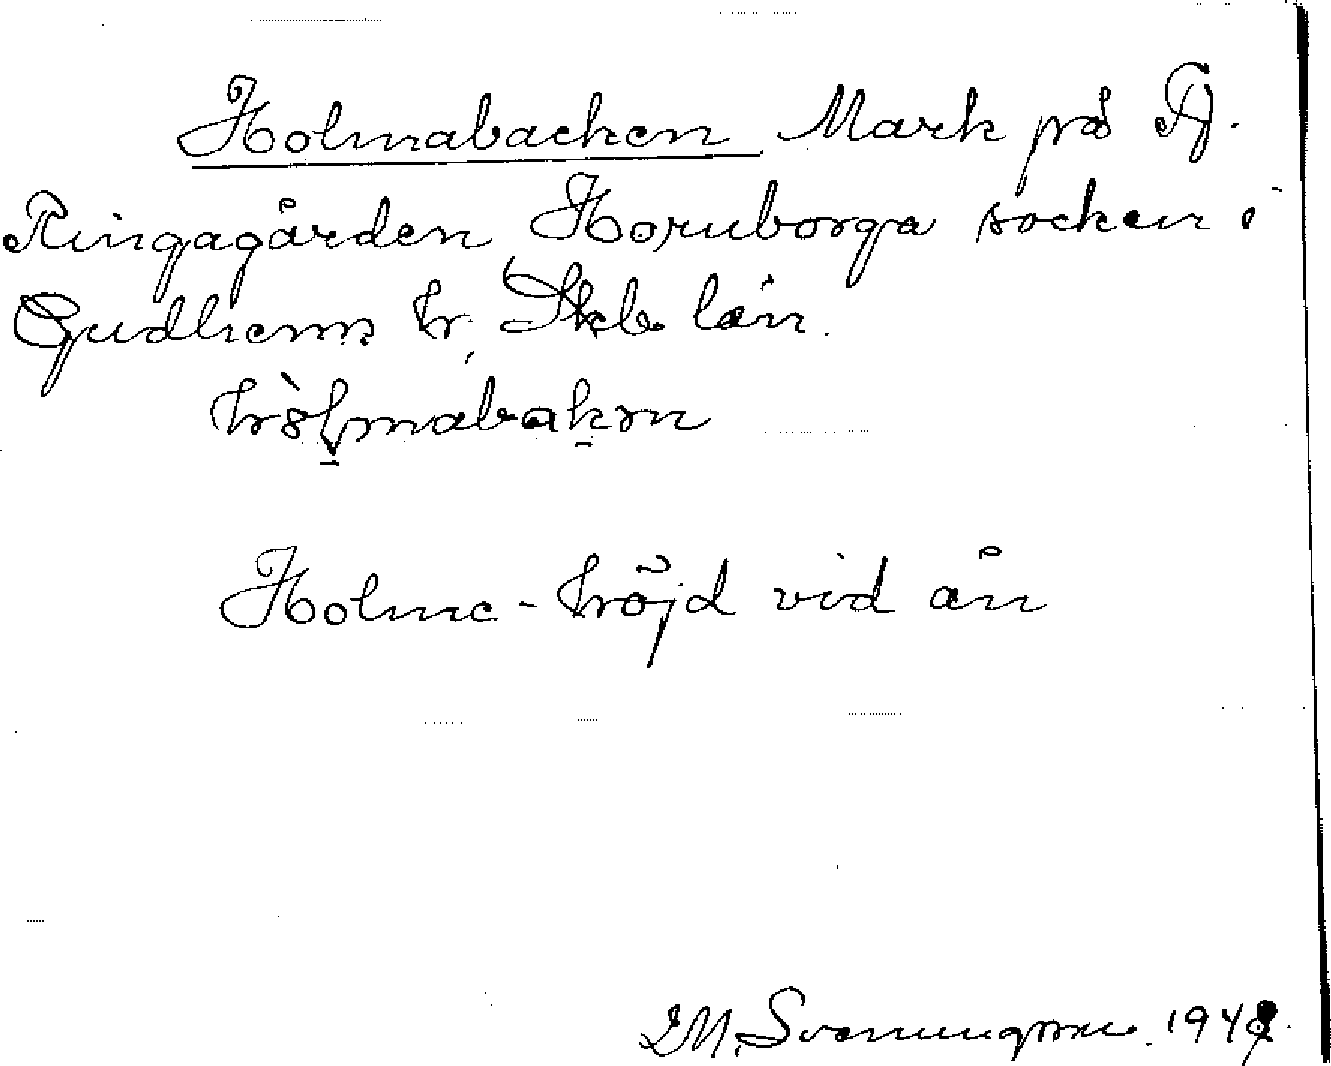 Holmabacken Mark på
Ringagården Hornborga socken i
Gudhems hr, Skb. län.
hòlmabakən
Holme - höjd vid ån
Svenungsson. 194